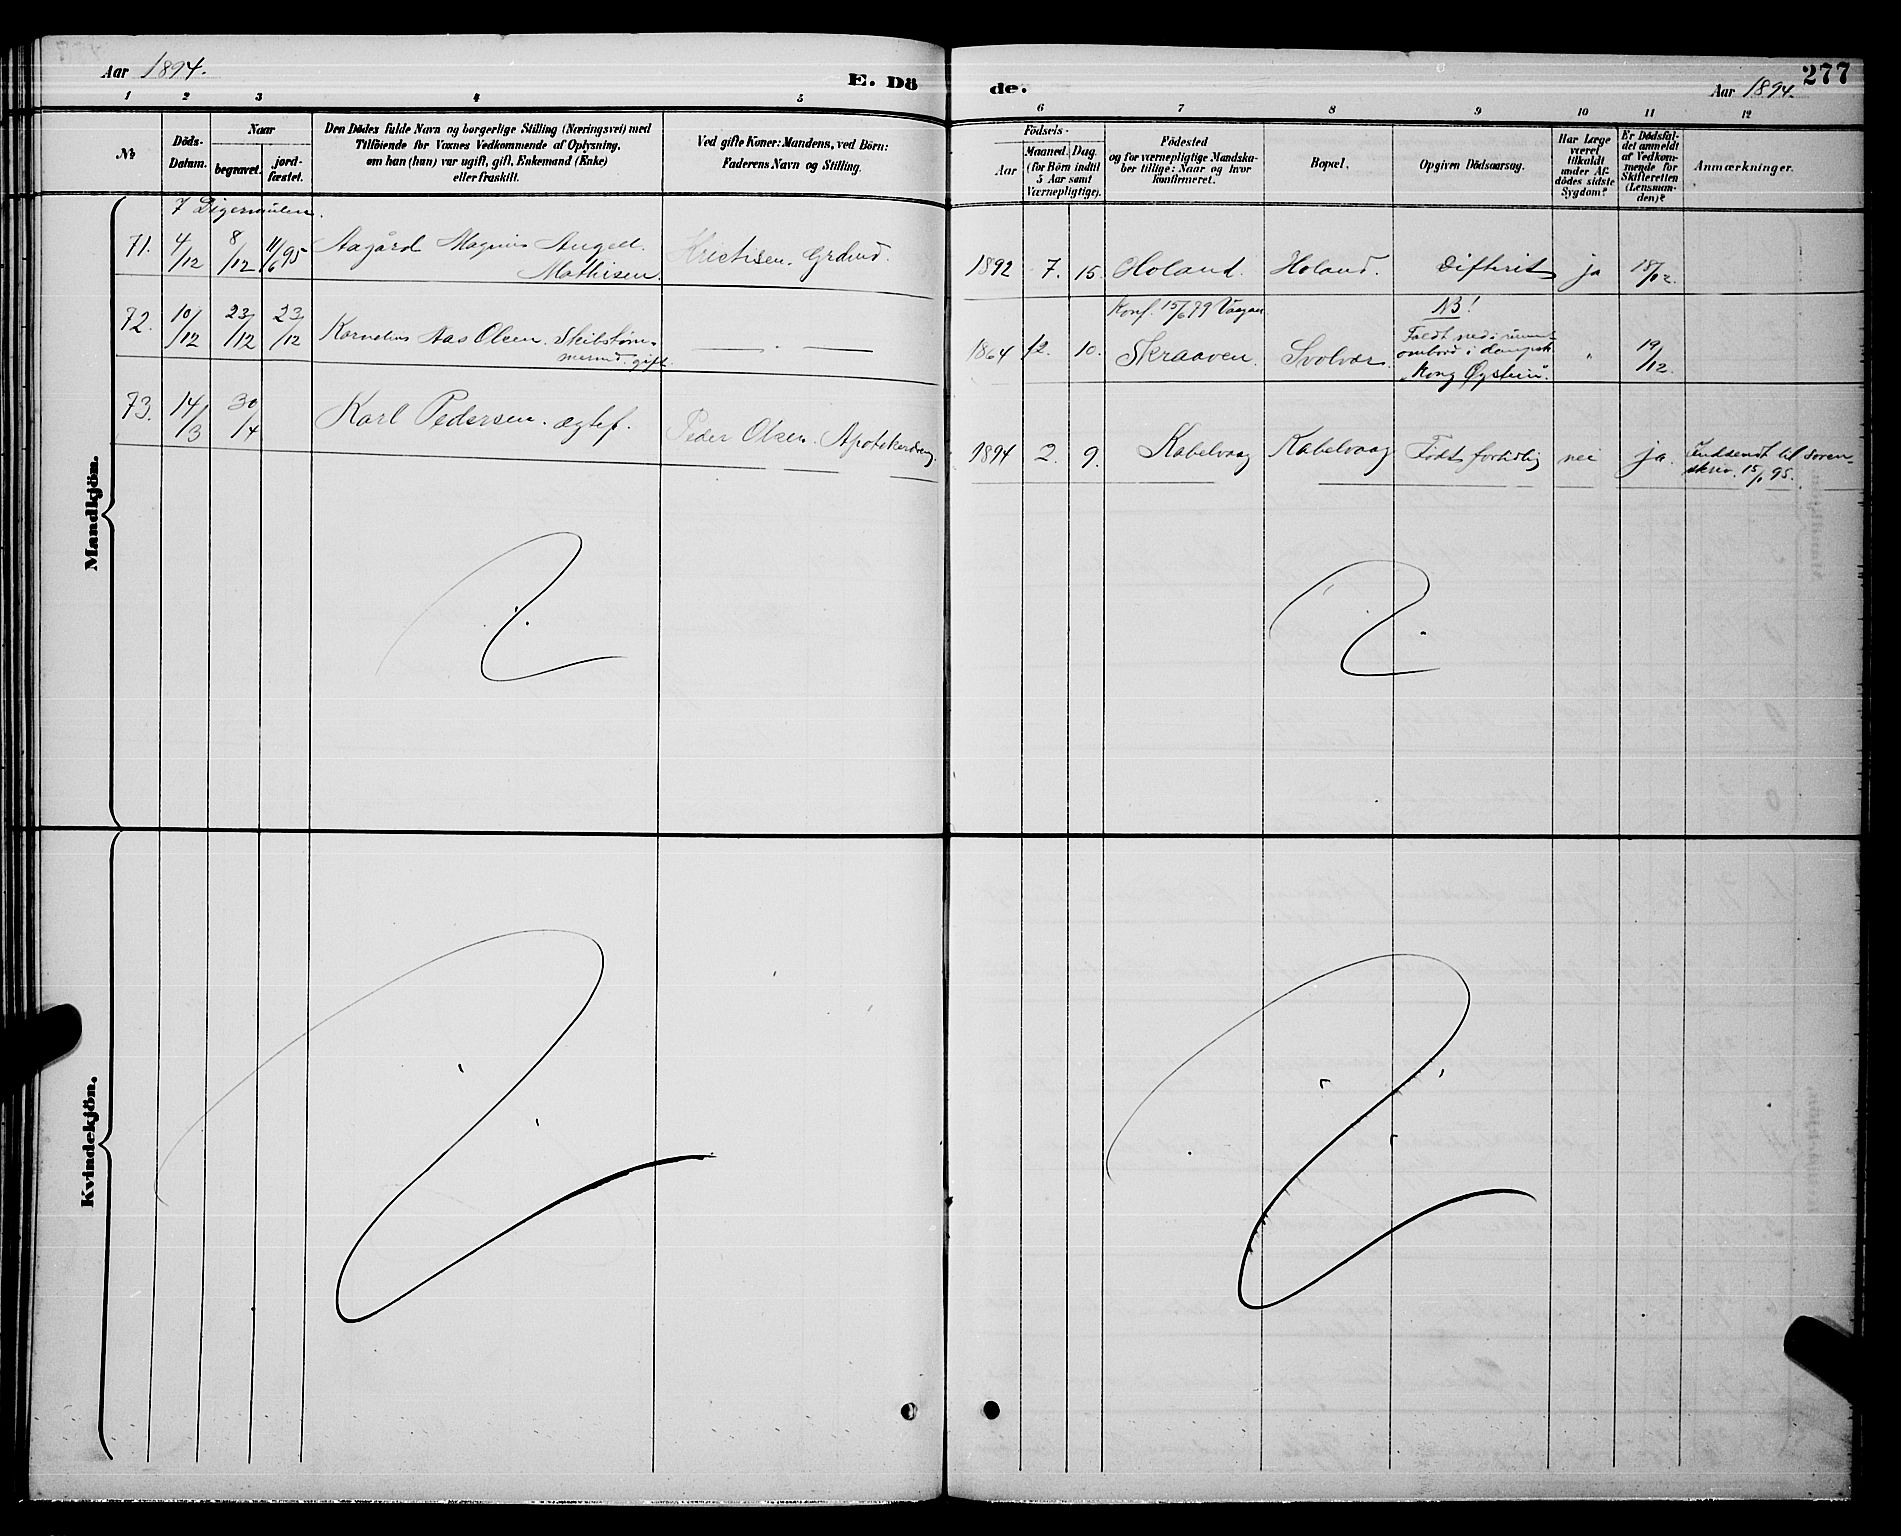 Aar 1894.
E. Dö
de.
Aar 1894.
277
1 2 3 4 5
6 7 8 9 10 11 12
No
Döds-
Datum.
Naar
begravet.
jord-
fæstet.
Den Dödes fulde Navn og borgerlige Stilling (Næringsvei) med
Tilföiende for Voxnes Vedkommende af Oplysning,
om han (hun) var ugift, gift, Enkemand (Enke)
eller fraskilt.
Ved gifte Koner: Mandens, ved Börn:
Faderens Navn og Stilling.
Födsels-
Aar
Maaned. Dag.
(for Börn indtil
5 Aar samt
Værnepligtige).
Födested
og for værnepligtige Mandska-
ber tillige: Naar og hvor
konfirmeret.
Bopæl.
Opgiven Dödsaarsag.
Har Læge
været
tilkaldt
under Af-
dödes sidste
Sygdom?
Er Dödsfal-
det anmeldt
af Vedkom-
mende for
Skifteretten
(Lensman-
den)?
Anmærkninger.
Mandkjön.
7 Digermulen.
71. 4/12 8/12 11/6 95 Aagård Magnus Angell Mathisen. Grdmd. 1892 7. 15. Holand. Holand. Difterit ja 18/12.
72. 10/12 23/12 23/12 Kornelius Aas Olsen. Skibstøm-
mermd. gift. — . — 1864 12. 10. Konf. 15/6 79 Vaagan
Skraaven. Svolvær. NB!
Faldt ned i rummet
ombord i dampsk.
"Kong Øystein". " 19/12.
73. 14/3 30/4 Karl Pedersen. ægtef. Peder Olsen. Apotekerdreng. 1894 2. 9. Kabelvaag Kabelvaag Født fortidlig nei ja. Indsendt til soren-
skriv. 15/1 95.
Kvindekjön.